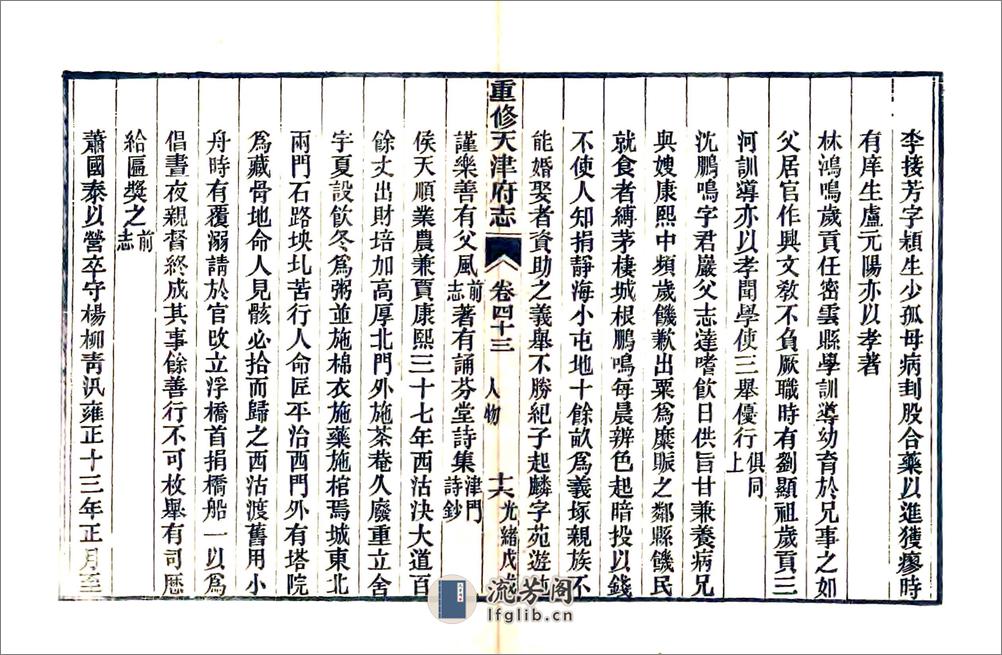 李接芳字穎生少孤母病刲股合藥以進獲瘳時
有庠生盧元陽亦以孝著
林鴻鳴歲貢任密雲縣學訓導幼育於兄事之如
父居官作興文教不負厥職時有劉顯祖歲貢三
河訓導亦以孝聞學使三舉優行俱同上
沈鵬鳴字君巖父志達嗜飲日供旨甘兼養病兄
與嫂康熙中頻歲饑歉出粟為糜賑之鄰縣饑民
就食者縛茅棲城根鵬鳴每晨辨色起暗投以錢
不使人知捐靜海小屯地十餘畝為義塚親族不
能婚娶者資助之義舉不勝紀子起麟字苑遊
重修天津府志 卷四十三 人物 十六 光緒戊戌
謹樂善有父風前志著有誦芬堂詩集津門詩鈔
侯天順業農兼賈康熙三十七年西沽決大道百
餘丈出財培加高厚北門外施茶菴久廢重立舍
宇夏設飲冬為粥並施棉衣施藥施棺焉城東北
兩門石路坱圠苦行人命匠平治西門外有塔院
為藏骨地命人見骸必拾而歸之西沽渡舊用小
舟時有覆溺請於官改立浮橋首捐橋船一以為
倡晝夜親督終成其事餘善行不可枚舉有司歷
給匾獎之前志
蕭國泰以營卒守楊柳靑汛雍正十三年正月至
流芳阁
lfglib.cn